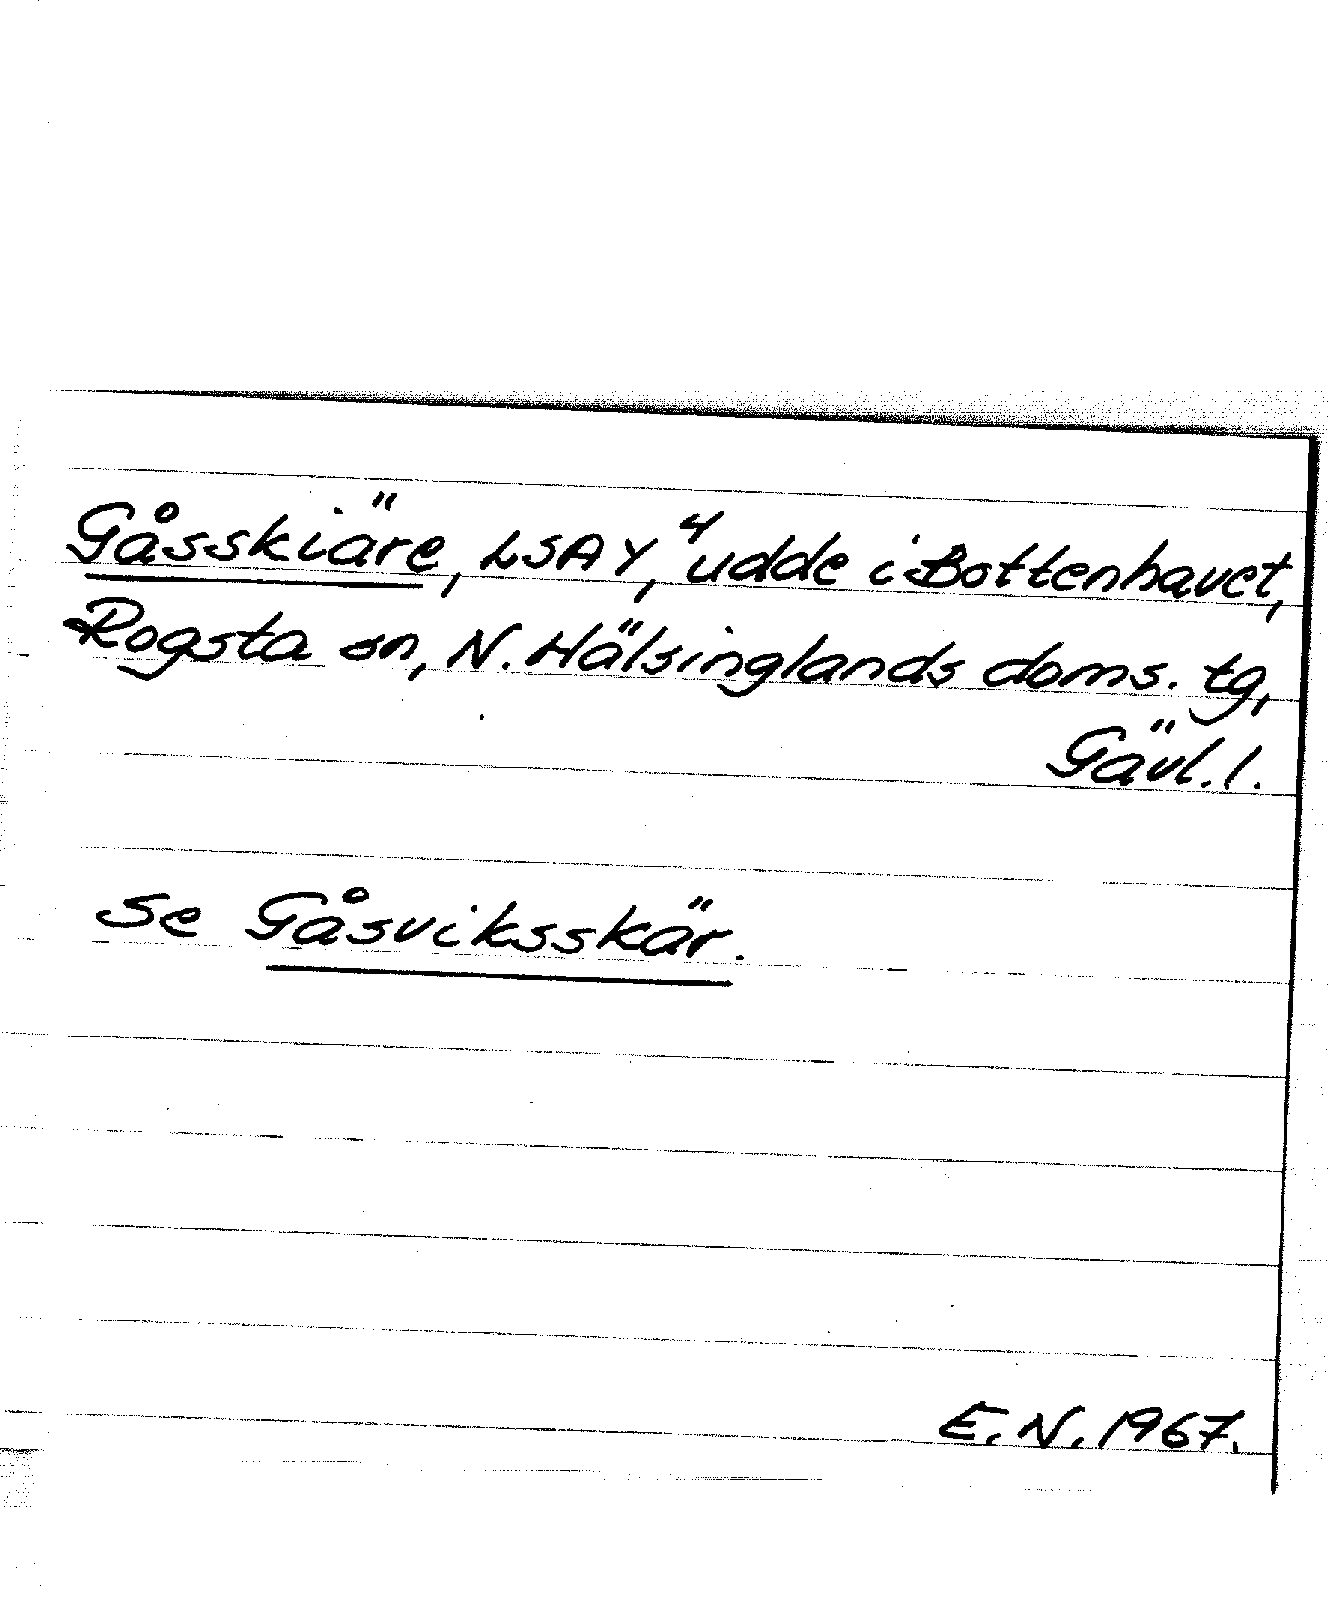 Gåsskiäre, LSA Y,⁴ udde i Bottenhavet,
Rogsta sn, N. Hälsinglands doms. tg,
Gävl. l.
se Gåsviksskär.
E.N. 1967.